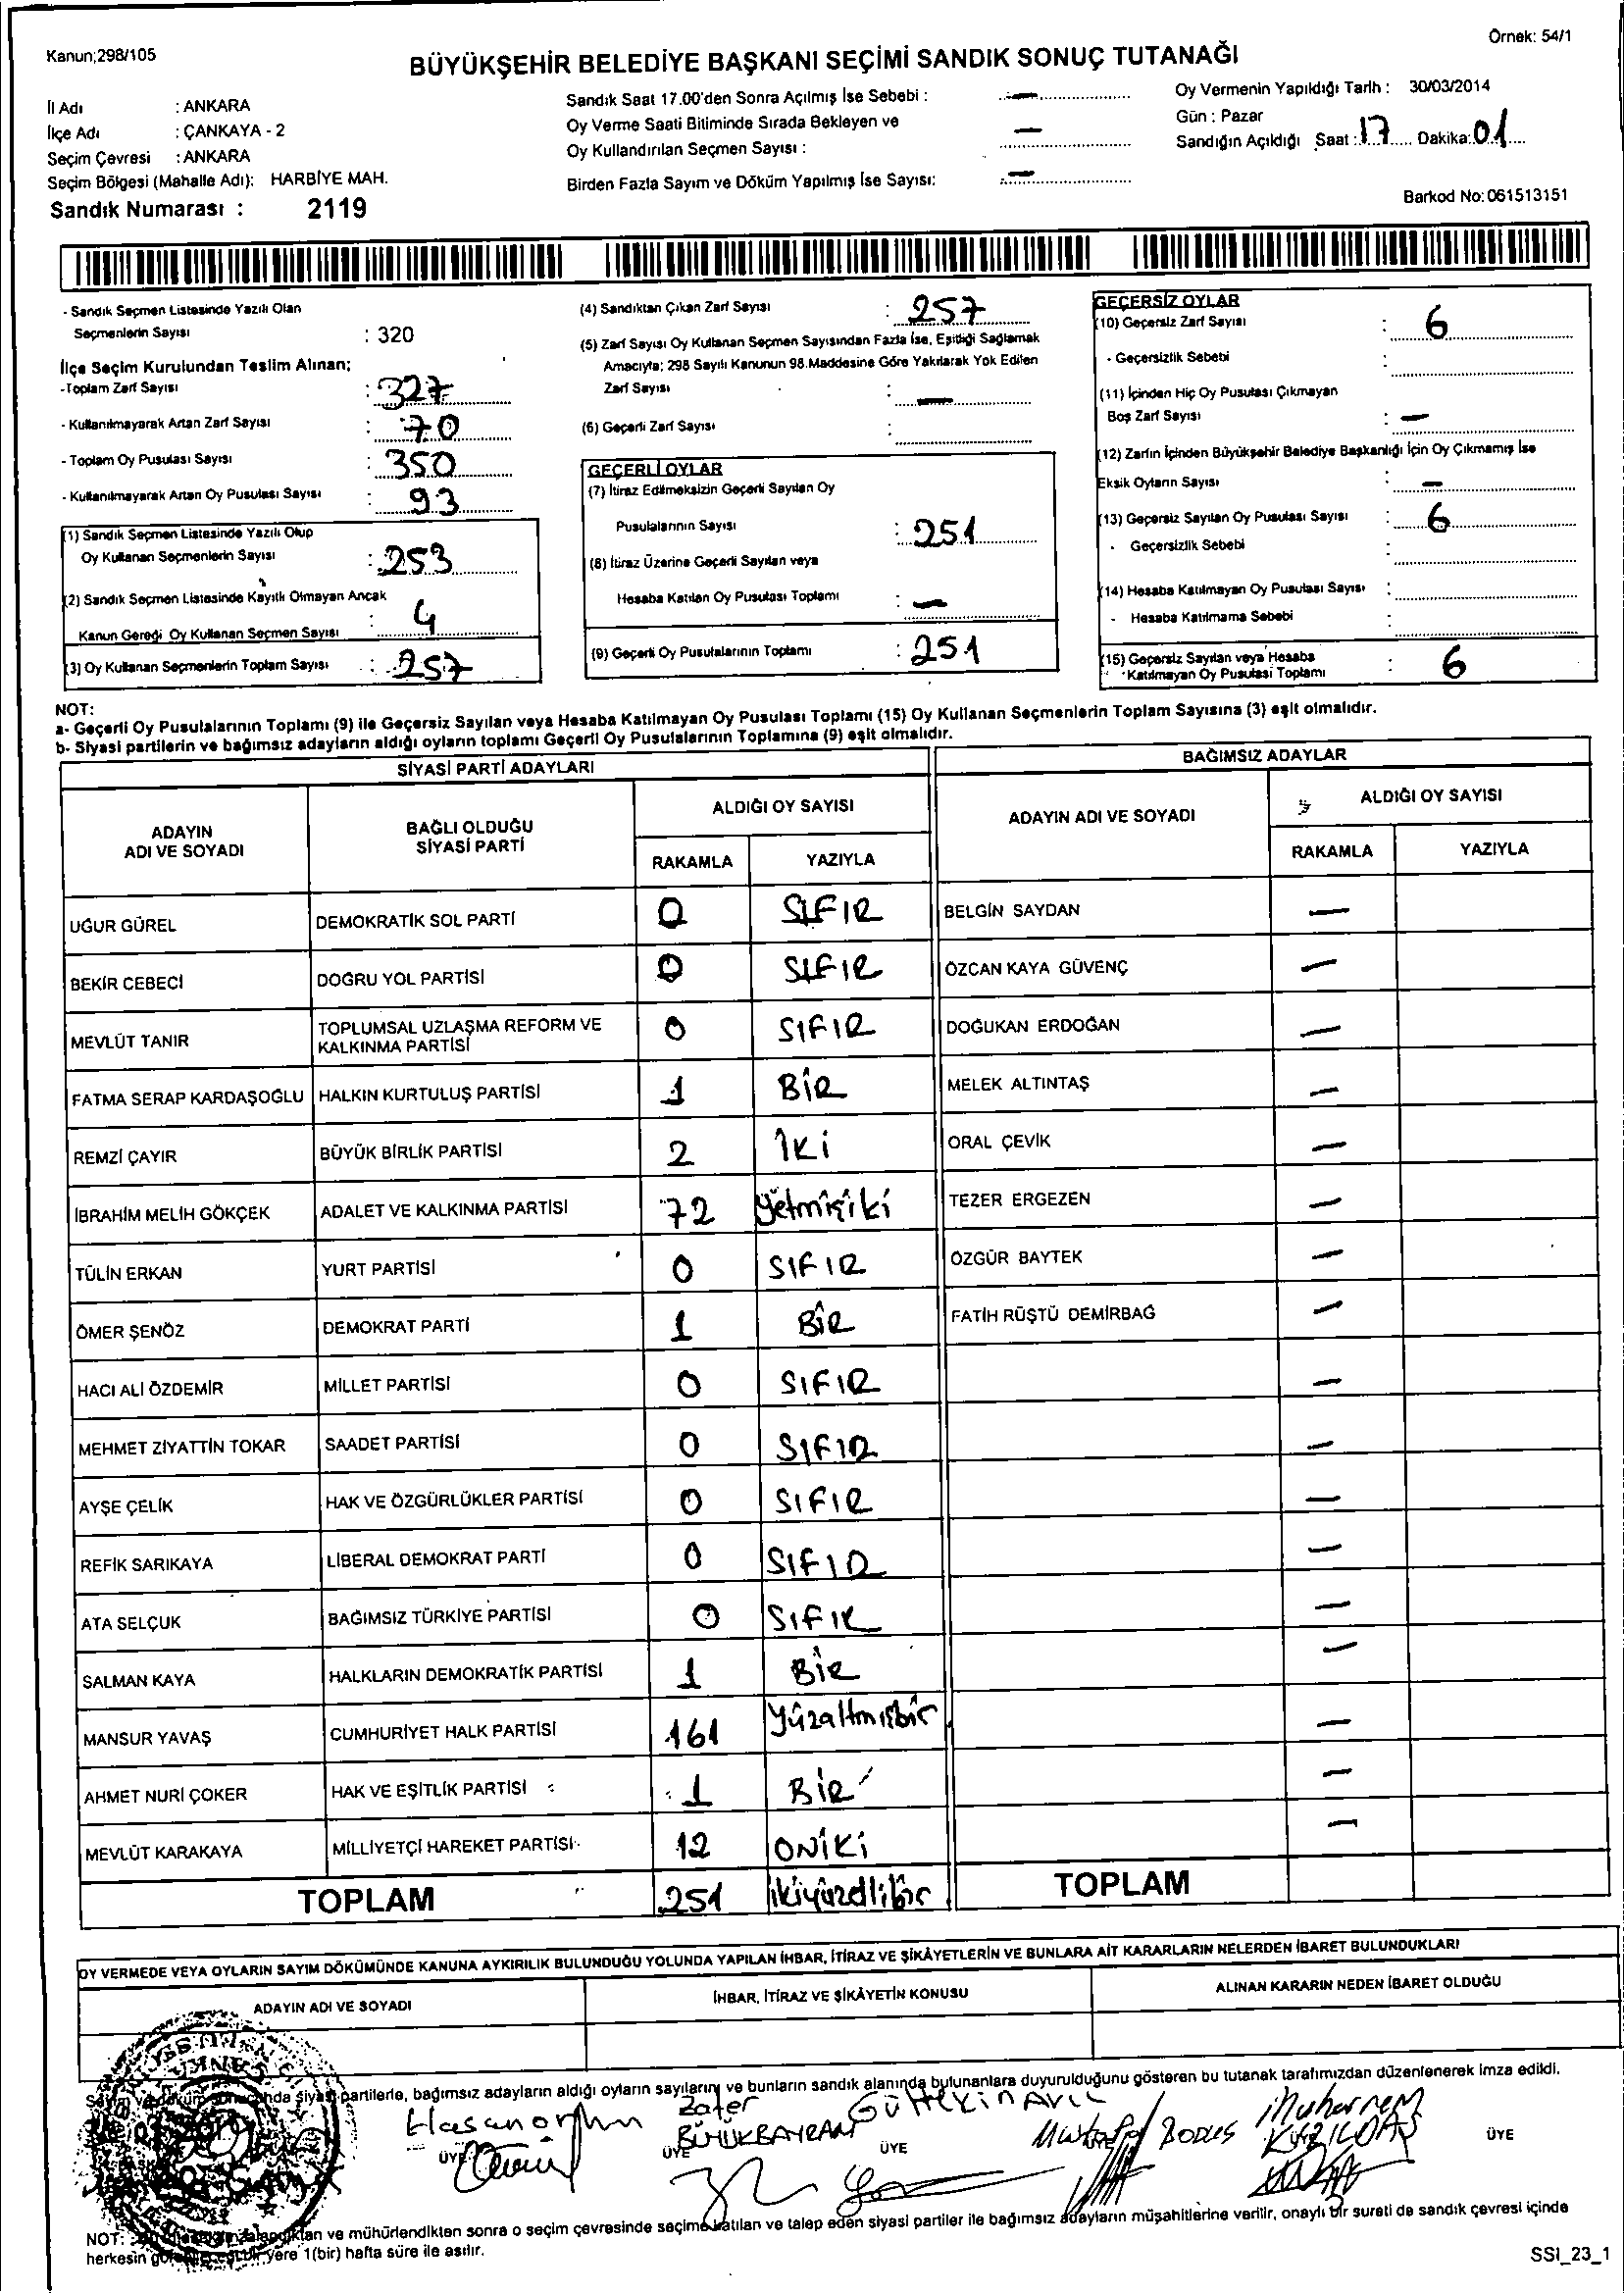 Kanun;298/105
Örnek: 54/1
BÜYÜKŞEHİR BELEDİYE BAŞKANI SEÇİMİ SANDIK SONUÇ TUTANAĞI
İl Adı : ANKARA
İlçe Adı : ÇANKAYA - 2
Seçim Çevresi : ANKARA
Seçim Bölgesi (Mahalle Adı): HARBİYE MAH.
Sandık Numarası : 2119
Sandık Saat 17.00'den Sonra Açılmış İse Sebebi : —
Oy Verme Saati Bitiminde Sırada Bekleyen ve
Oy Kullandırılan Seçmen Sayısı : —
Birden Fazla Sayım ve Döküm Yapılmış İse Sayısı: —
Oy Vermenin Yapıldığı Tarih : 30/03/2014
Gün : Pazar
Sandığın Açıldığı Saat : 17 Dakika: 01
Barkod No: 061513151
- Sandık Seçmen Listesinde Yazılı Olan
Seçmenlerin Sayısı : 320
İlçe Seçim Kurulundan Teslim Alınan;
-Toplam Zarf Sayısı : 327
- Kullanılmayarak Artan Zarf Sayısı : 70
- Toplam Oy Pusulası Sayısı : 350
- Kullanılmayarak Artan Oy Pusulası Sayısı : 93
(1) Sandık Seçmen Listesinde Yazılı Olup
Oy Kullanan Seçmenlerin Sayısı : 253
(2) Sandık Seçmen Listesinde Kayıtlı Olmayan Ancak
Kanun Gereği Oy Kullanan Seçmen Sayısı : 4
(3) Oy Kullanan Seçmenlerin Toplam Sayısı : 257
(4) Sandıktan Çıkan Zarf Sayısı : 257
(5) Zarf Sayısı Oy Kullanan Seçmen Sayısından Fazla İse, Eşitliği Sağlamak
Amacıyla; 298 Sayılı Kanunun 98.Maddesine Göre Yakılarak Yok Edilen
Zarf Sayısı : —
(6) Geçerli Zarf Sayısı :
GEÇERLİ OYLAR
(7) İtiraz Edilmeksizin Geçerli Sayılan Oy
Pusulalarının Sayısı : 251
(8) İtiraz Üzerine Geçerli Sayılan veya
Hesaba Katılan Oy Pusulası Toplamı : —
(9) Geçerli Oy Pusulalarının Toplamı : 251
GEÇERSİZ OYLAR
(10) Geçersiz Zarf Sayısı : 6
- Geçersizlik Sebebi :
(11) İçinden Hiç Oy Pusulası Çıkmayan
Boş Zarf Sayısı : —
(12) Zarfın İçinden Büyükşehir Belediye Başkanlığı İçin Oy Çıkmamış İse
Eksik Oyların Sayısı : —
(13) Geçersiz Sayılan Oy Pusulası Sayısı : 6
- Geçersizlik Sebebi :
(14) Hesaba Katılmayan Oy Pusulası Sayısı :
- Hesaba Katılmama Sebebi :
(15) Geçersiz Sayılan veya Hesaba
Katılmayan Oy Pusulası Toplamı : 6
NOT:
a- Geçerli Oy Pusulalarının Toplamı (9) ile Geçersiz Sayılan veya Hesaba Katılmayan Oy Pusulası Toplamı (15) Oy Kullanan Seçmenlerin Toplam Sayısına (3) eşit olmalıdır.
b- Siyasi partilerin ve bağımsız adayların aldığı oyların toplamı Geçerli Oy Pusulalarının Toplamına (9) eşit olmalıdır.
SİYASİ PARTİ ADAYLARI
ADAYIN
ADI VE SOYADI
BAĞLI OLDUĞU
SİYASİ PARTİ
ALDIĞI OY SAYISI
RAKAMLA YAZIYLA
BAĞIMSIZ ADAYLAR
ADAYIN ADI VE SOYADI
ALDIĞI OY SAYISI
RAKAMLA YAZIYLA
UĞUR GÜREL DEMOKRATİK SOL PARTİ 0 SIFIR BELGİN SAYDAN —
BEKİR CEBECİ DOĞRU YOL PARTİSİ 0 SIFIR ÖZCAN KAYA GÜVENÇ —
MEVLÜT TANIR TOPLUMSAL UZLAŞMA REFORM VE
KALKINMA PARTİSİ 0 SIFIR DOĞUKAN ERDOĞAN —
FATMA SERAP KARDAŞOĞLU HALKIN KURTULUŞ PARTİSİ 1 BİR MELEK ALTINTAŞ —
REMZİ ÇAYIR BÜYÜK BİRLİK PARTİSİ 2 İKİ ORAL ÇEVİK —
İBRAHİM MELİH GÖKÇEK ADALET VE KALKINMA PARTİSİ 72 Yetmişiki TEZER ERGEZEN —
TÜLİN ERKAN YURT PARTİSİ 0 SIFIR ÖZGÜR BAYTEK —
ÖMER ŞENÖZ DEMOKRAT PARTİ 1 BİR FATİH RÜŞTÜ DEMİRBAĞ —
HACI ALİ ÖZDEMİR MİLLET PARTİSİ 0 SIFIR —
MEHMET ZİYATTİN TOKAR SAADET PARTİSİ 0 SIFIR —
AYŞE ÇELİK HAK VE ÖZGÜRLÜKLER PARTİSİ 0 SIFIR —
REFİK SARIKAYA LİBERAL DEMOKRAT PARTİ 0 SIFIR —
ATA SELÇUK BAĞIMSIZ TÜRKİYE PARTİSİ 0 SIFIR —
SALMAN KAYA HALKLARIN DEMOKRATİK PARTİSİ 1 BİR —
MANSUR YAVAŞ CUMHURİYET HALK PARTİSİ 161 Yüzaltmışbir —
AHMET NURİ ÇOKER HAK VE EŞİTLİK PARTİSİ 1 BİR —
MEVLÜT KARAKAYA MİLLİYETÇİ HAREKET PARTİSİ 12 ONİKİ —
TOPLAM 251 ikiyüzellibir TOPLAM
OY VERMEDE VEYA OYLARIN SAYIM DÖKÜMÜNDE KANUNA AYKIRILIK BULUNDUĞU YOLUNDA YAPILAN İHBAR, İTİRAZ VE ŞİKÂYETLERİN VE BUNLARA AİT KARARLARIN NELERDEN İBARET BULUNDUKLARI
ADAYIN ADI VE SOYADI İHBAR, İTİRAZ VE ŞİKÂYETİN KONUSU ALINAN KARARIN NEDEN İBARET OLDUĞU
siyasi partilerle, bağımsız adayların aldığı oyların sayılarını ve bunların sandık alanında bulunanlara duyurulduğunu gösteren bu tutanak tarafımızdan düzenlenerek imza edildi.
Zafer
BÜYÜKBAYRAM
Muharrem
ÜYE ÜYE ÜYE ÜYE
NOT: ve mühürlendikten sonra o seçim çevresinde seçime katılan ve talep eden siyasi partiler ile bağımsız adayların müşahitlerine verilir, onaylı bir sureti de sandık çevresi içinde
herkesin yere 1(bir) hafta süre ile asılır.
SSI_23_1